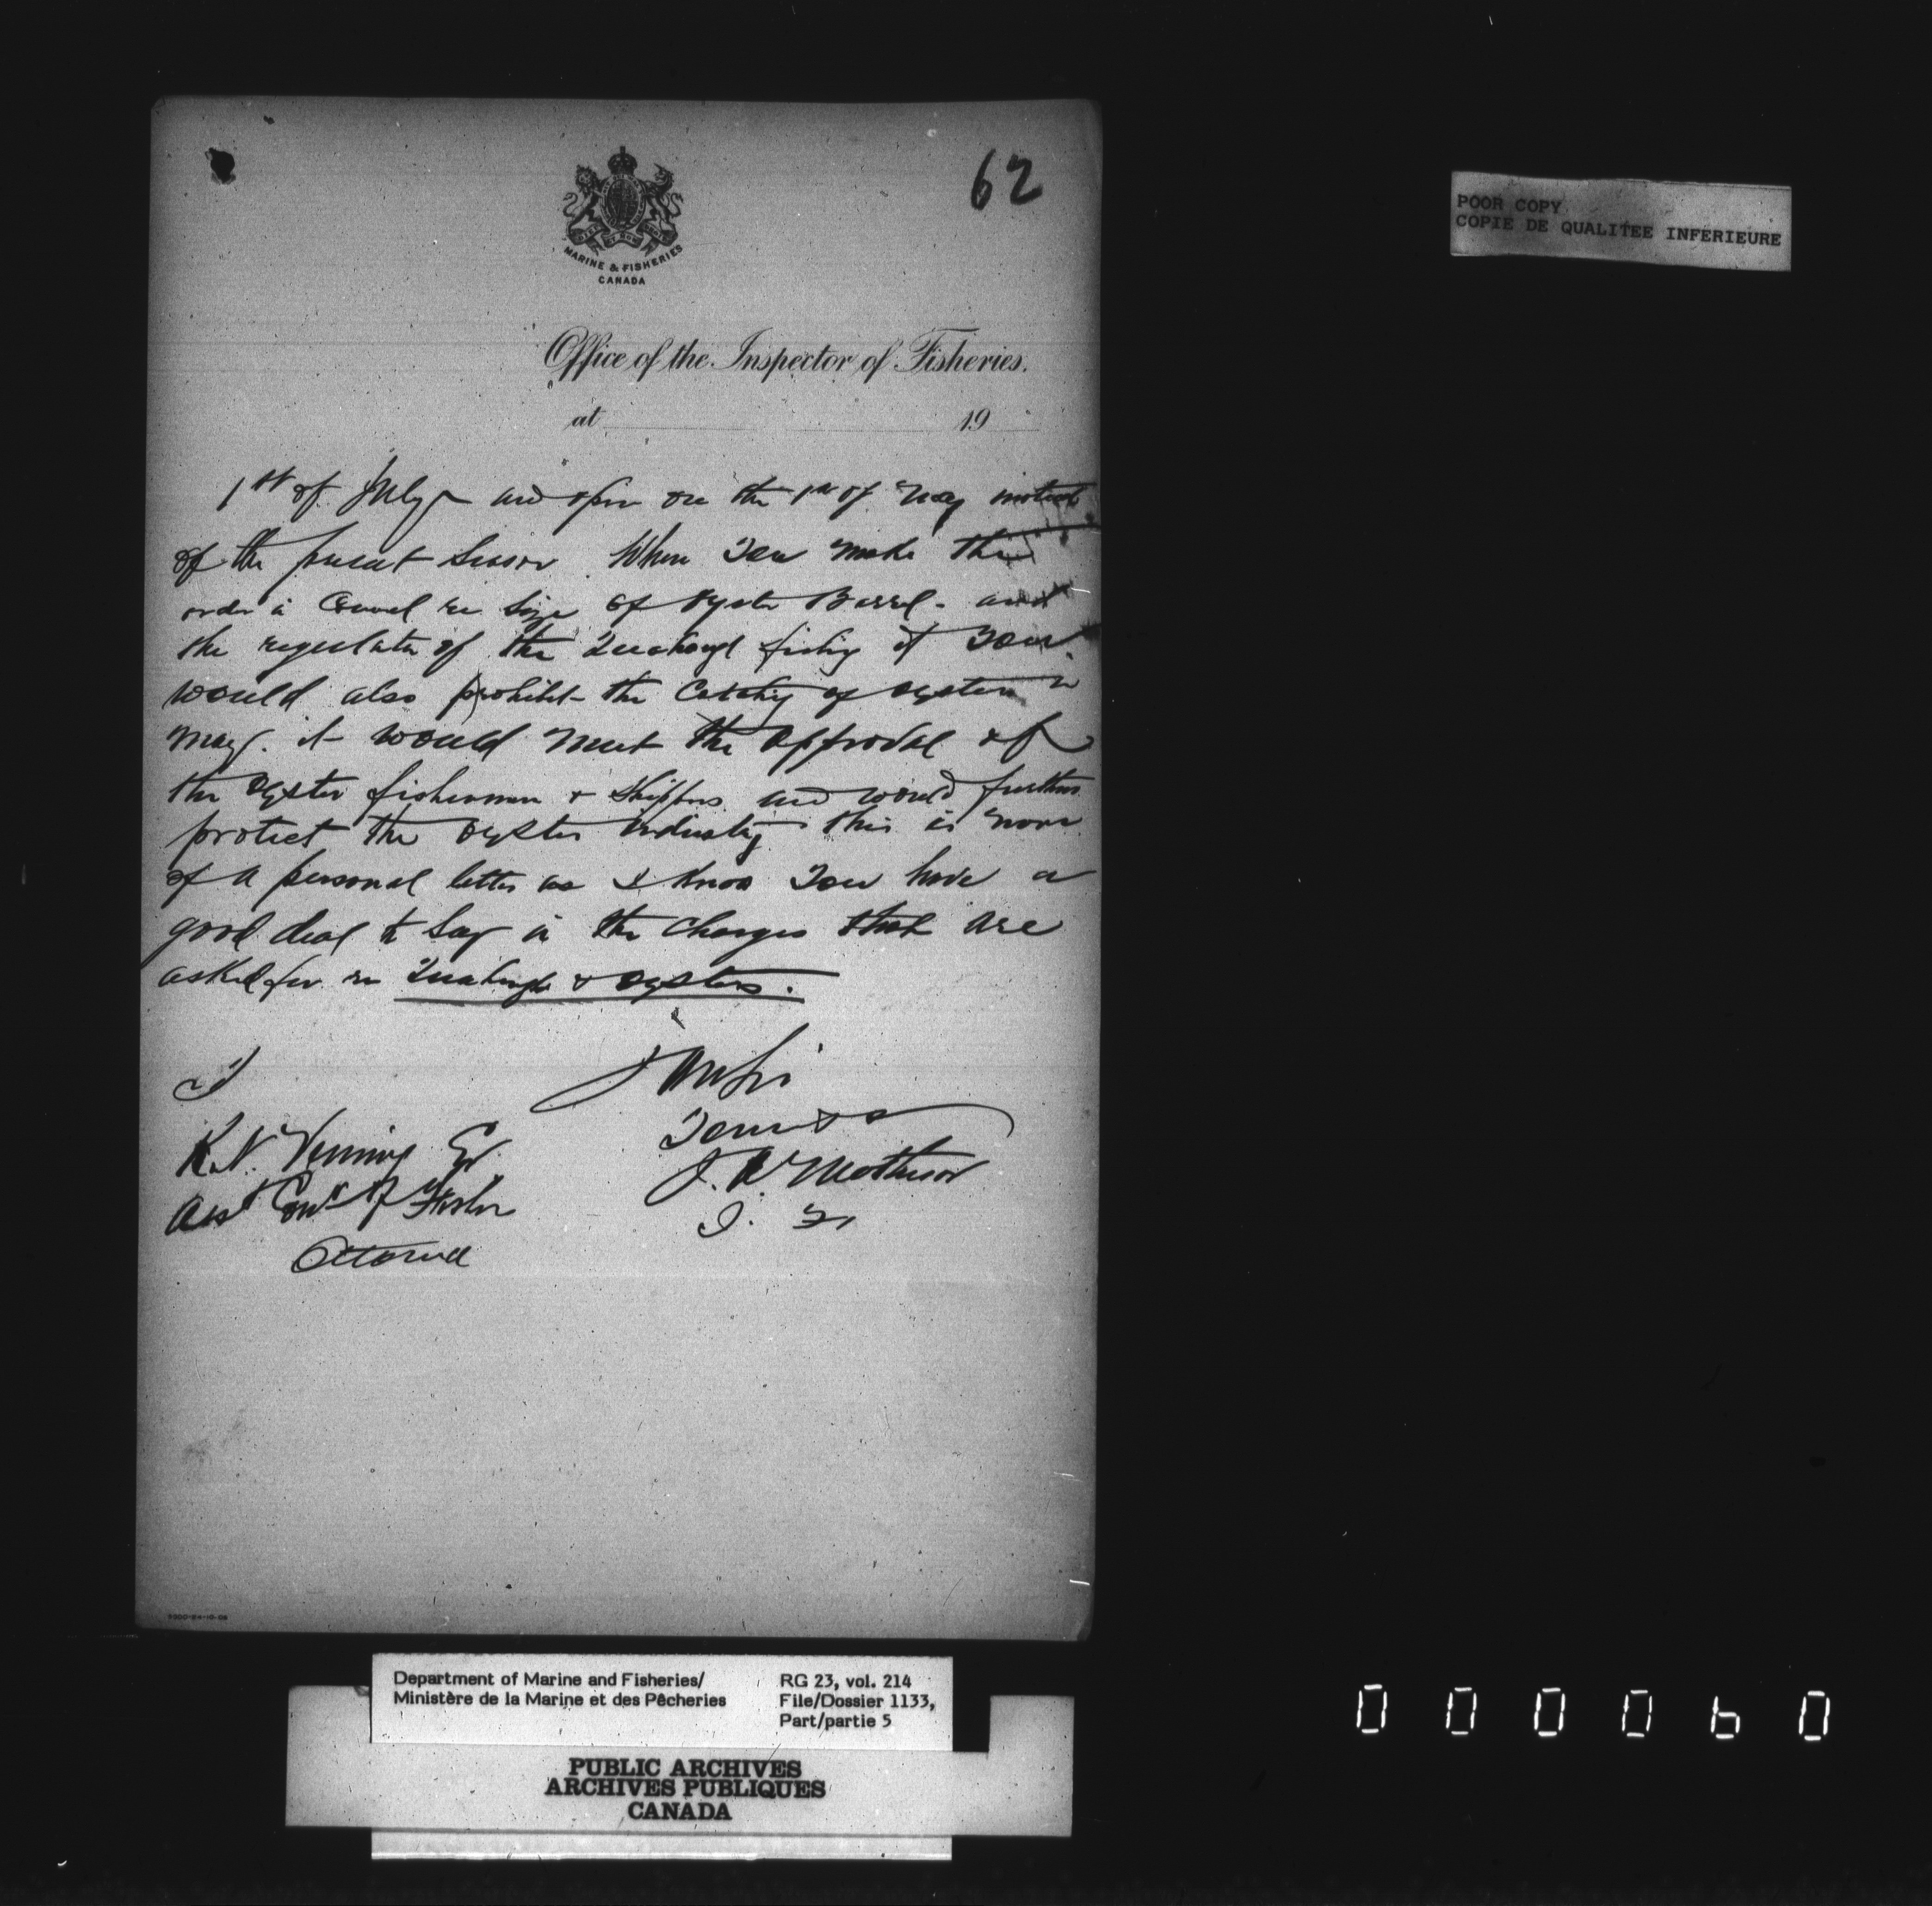 62
MARINE & FISHERIES
CANADA
Office of the Inspector of Fisheries.
at 19
1st of July and open on the 1st of May instead
of the present season. When you make the
order in Council re size of oyster Barrel - and
the regulation of the Quahaug fishing if you
would also prohibit the catching of oysters in
May. it would meet the approval of
the oyster fishermen & shippers and would further
protect the oyster industry this is more
of a personal letter as I know you have a
good deal to say in the changes that are
asked for re Quahaugs & oysters.
R. N. Venning Esq
Asst Comr of Fisher
Ottawa
Yours
J. A. Matheson
I. F.
POOR COPY
COPIE DE QUALITEE INFERIEURE
Department of Marine and Fisheries/
Ministère de la Marine et des Pêcheries
RG 23, vol. 214
File/Dossier 1133,
Part/partie 5
PUBLIC ARCHIVES
ARCHIVES PUBLIQUES
CANADA
000060